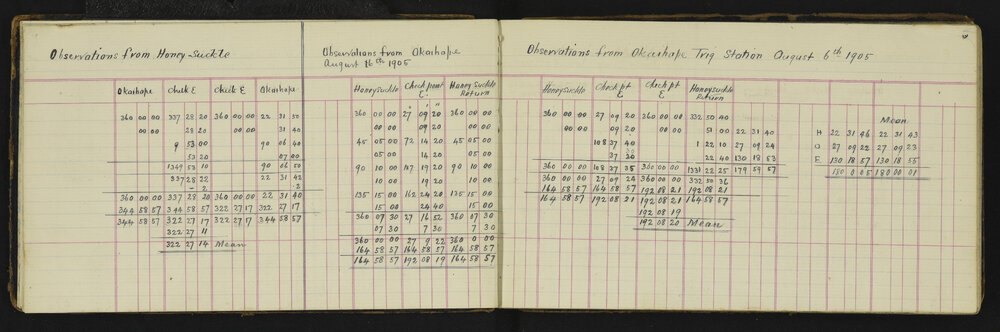 Observations from Honey-Suckle
Okaihape Check E Check E Okaihape
360 00 00 337 28 20 360 00 00 22 31 50
00 00 28 20 00 00 31 40
9 53 00 90 06 40
53 20 07 00
1349 53 10 90 06 50
337 28 22 22 31 42
- 2 - 2
360 00 00 337 28 20 360 00 00 22 31 40
344 58 57 344 58 57 322 27 17 322 27 17
344 58 57 322 27 17 322 27 17 344 58 57
322 27 11
322 27 14 Mean
Observations from Okaihape
August 16th 1905
Honeysuckle Check point E Honey Suckle Return
360 00 00 27 09 20 360 00 00
00 00 09 20 00 00
45 05 00 72 14 20 45 05 00
05 00 14 20 05 00
90 10 00 117 19 20 90 10 00
10 00 19 20 10 00
135 15 00 162 24 20 135 15 00
15 00 24 40 15 00
360 07 30 27 16 52 360 07 30
07 30 7 30 7 30
360 00 00 27 9 22 360 0 00
164 58 57 164 58 57 164 58 57
164 58 57 192 08 19 164 58 57
Observations from Okaihape Trig Station August 6th 1905
Honeysuckle Check pt E Check pt E Honeysuckle Return
360 00 00 27 09 20 360 00 00 332 50 40
00 00 09 20 00 00 51 00 22 31 40
108 37 40 1 22 10 27 09 24
37 20 22 40 130 18 53
360 00 00 108 37 35 360 00 00 1331 22 25 179 59 57
360 00 00 27 09 24 360 00 00 332 50 36
164 58 57 164 58 57 192 08 21 192 08 21
164 58 57 192 08 21 192 08 21 164 58 57
192 08 19
192 08 20 Mean
Mean
H 22 31 46 22 31 43
O 27 09 22 27 09 23
E 130 18 57 130 18 55
180 0 05 180 00 01